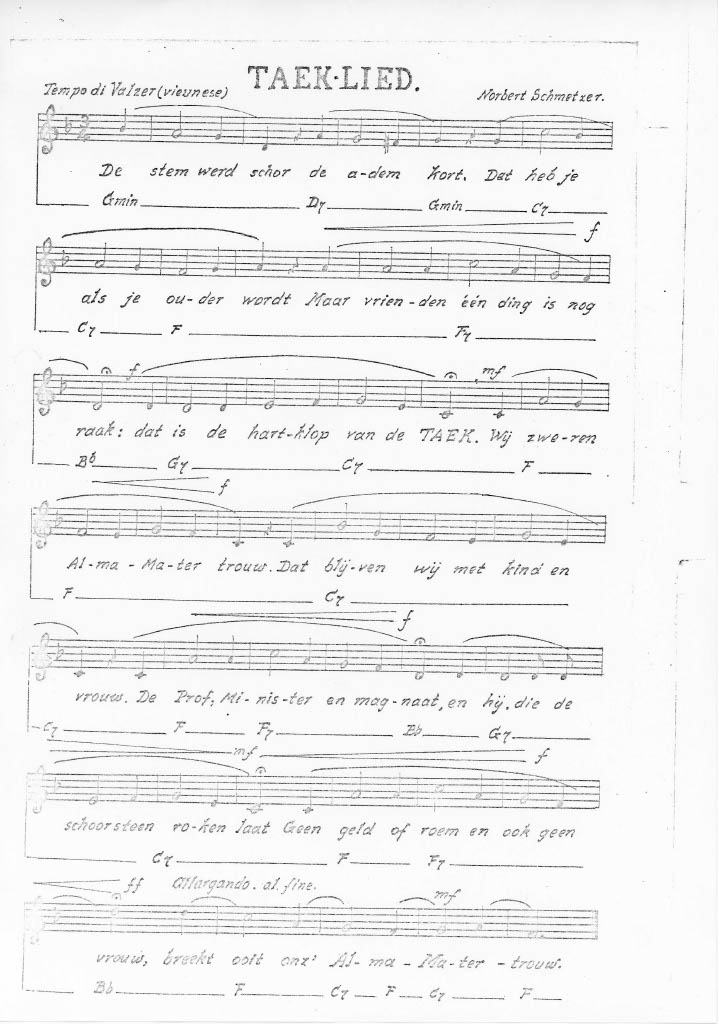 TAEK-LIED.
Tempo di Valzer (viennese)
Norbert Schmetzer.
De stem werd schor de a-dem kort. Dat heb je
Gmin D7 Gmin C7
f
als je ou-der wordt Maar vrien-den één ding is nog
C7 F F7
f mf
raak: dat is de hart-klop van de TAEK. Wij zwe-ren
Bb G7 C7 F
f
Al-ma-Ma-ter trouw. Dat blij-ven wij met kind en
F C7
f
vrouw. De Prof, Mi-nis-ter en mag-naat, en hij, die de
C7 F F7 Bb G7
mf f
schoorsteen ro-ken laat Geen geld of roem en ook geen
C7 F F7
ff Allargando. al. fine. mf
vrouw, breekt ooit onz' Al-ma-Ma-ter-trouw.
Bb F C7 F C7 F